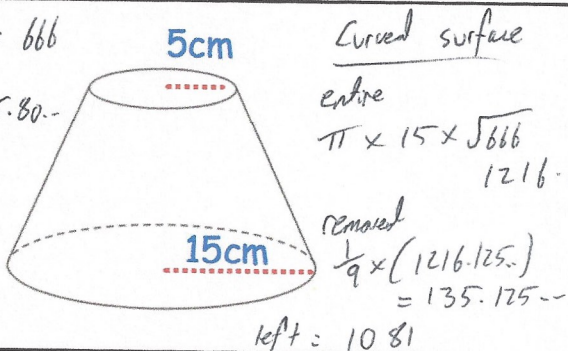 666
5cm
.80..
15cm
Curved surface
entire
π × 15 × √666
1216.
removed
1/9 × (1216.125..)
= 135.125--
left = 1081